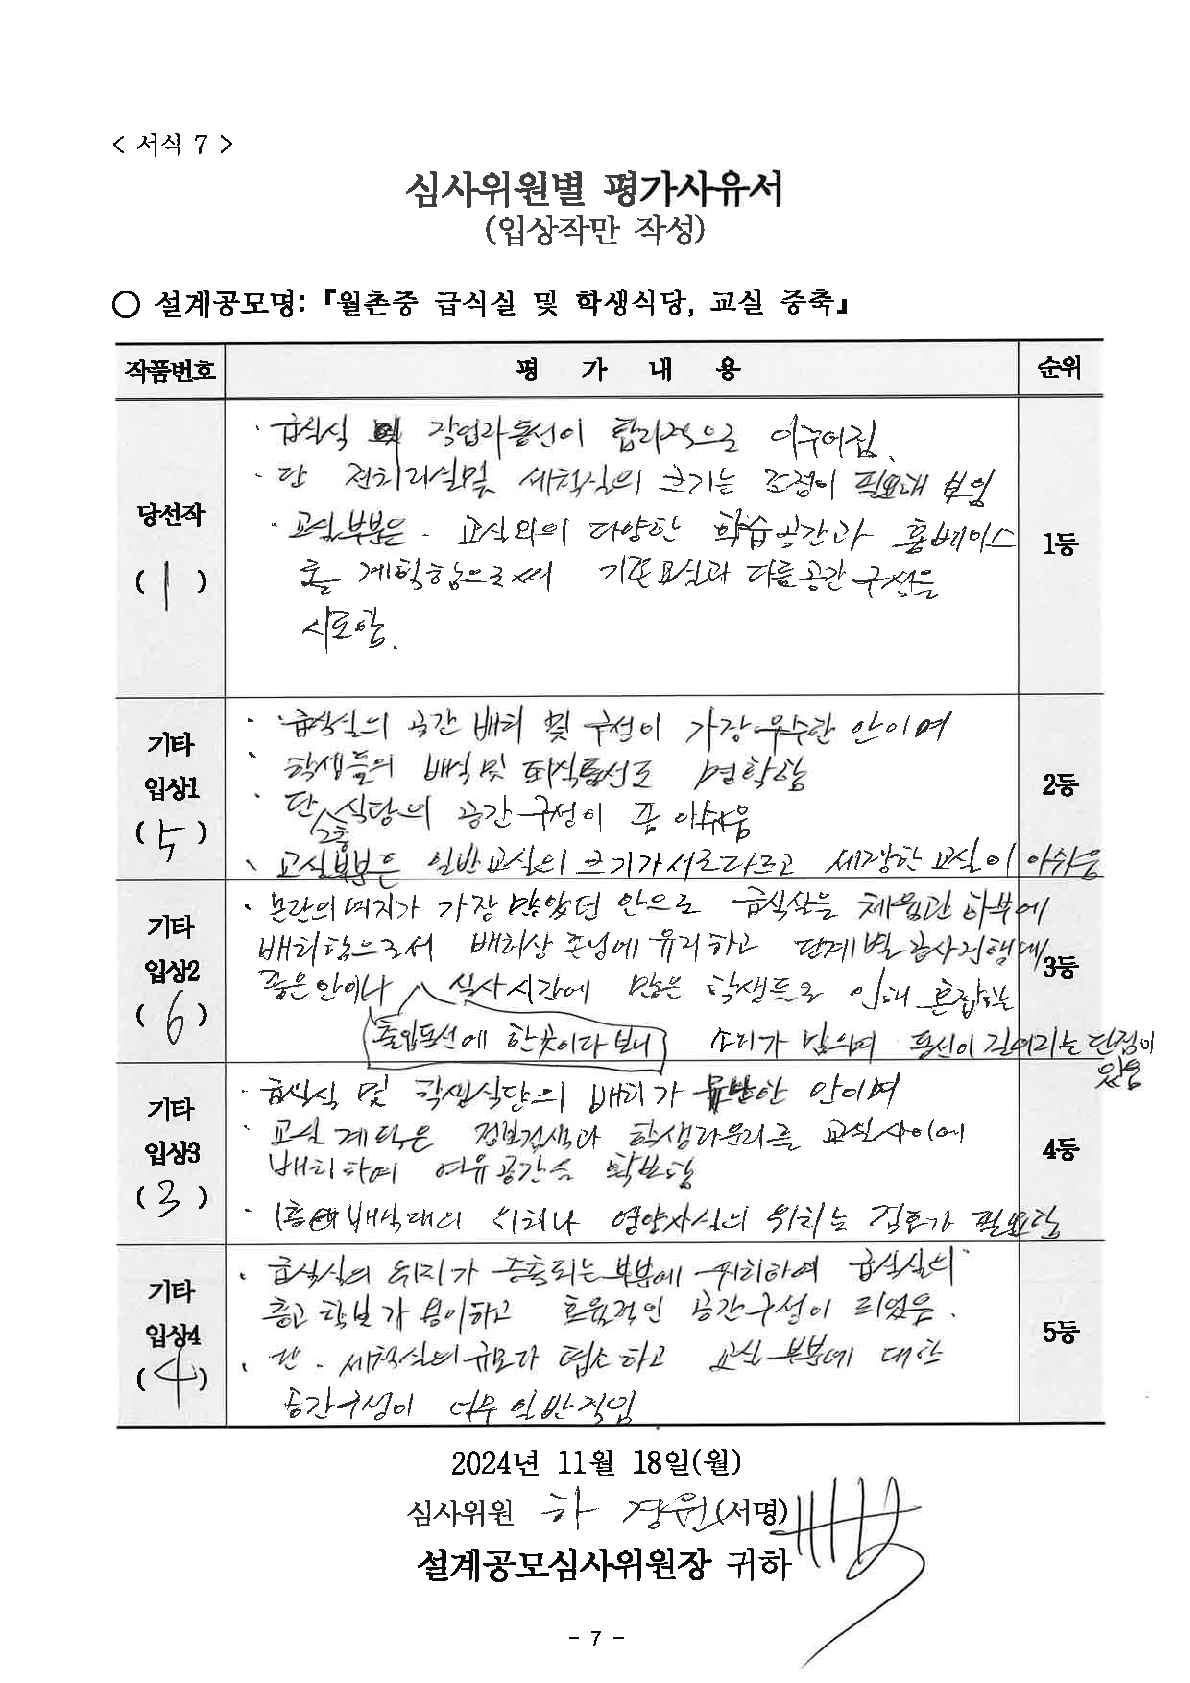 < 서식 7 >
심사위원별 평가사유서
(입상작만 작성)
○ 설계공모명:『월촌중 급식실 및 학생식당, 교실 증축』
작품번호 평 가 내 용 순위
당선작 (1) 1등
· 급식실 작업과동선이 합리적으로 이루어짐.
· 단 전처리실및 세척실의 크기는 조정이 필요해 보임
· 교실부분은 · 교실외의 다양한 학습공간과 홈베이스
를 계획함으로써 기존교실과 다른공간 구성을
시도함.
기타 입상1 (5) 2등
· 급식실의 공간 배치 및 구성이 가장 우수한 안이며
· 학생들의 배식 및 퇴식동선도 명확함
· 단, 2층 식당의 공간구성이 좀 아쉬움
· 교실부분은 일반교실의 크기가 서로다르고 세장한 교실이 아쉬움
기타 입상2 (6) 3등
· 논란의 여지가 가장 많았던 안으로 급식실을 체육관 하부에
배치함으로서 배치상 존닝에 유리하고 단계별 공사진행에
좋은안이나 출입동선에 한곳이다 보니 식사시간에 많은 학생들로 인해 혼잡도는
소지가 많으며 동선이 길어지는 단점이
있음
기타 입상3 (3) 4등
· 급식실 및 학생식당의 배치가 안이며
· 교실 계획은 정보검색과 학생라운지를 교실사이에
배치하여 여유공간을 확보함
· 1층 배식대의 위치나 영양사실의 위치는 검토가 필요함
기타 입상4 (4) 5등
· 급식실의 위치가 증축되는 부분에 위치하여 급식실의
층고 확보가 용이하고 효율적인 공간구성이 되었음.
· 단. 세척실의 규모가 협소하고 교실 부분에 대한
공간구성이 너무 일반적임
2024년 11월 18일(월)
심사위원 하 경원 (서명)
설계공모심사위원장 귀하
- 7 -